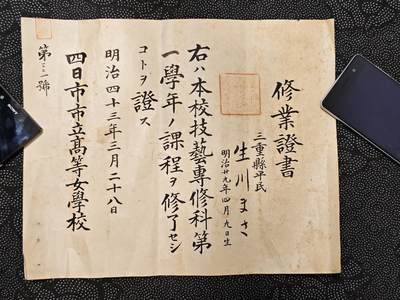 修業證書
三重縣平民
生川まさ
明治廿九年四月九日生
右ハ本校技藝專修科第
一學年ノ課程ヲ修了セシ
コトヲ證ス
明治四十三年三月二十八日
四日市市立高等女學校
第三二號